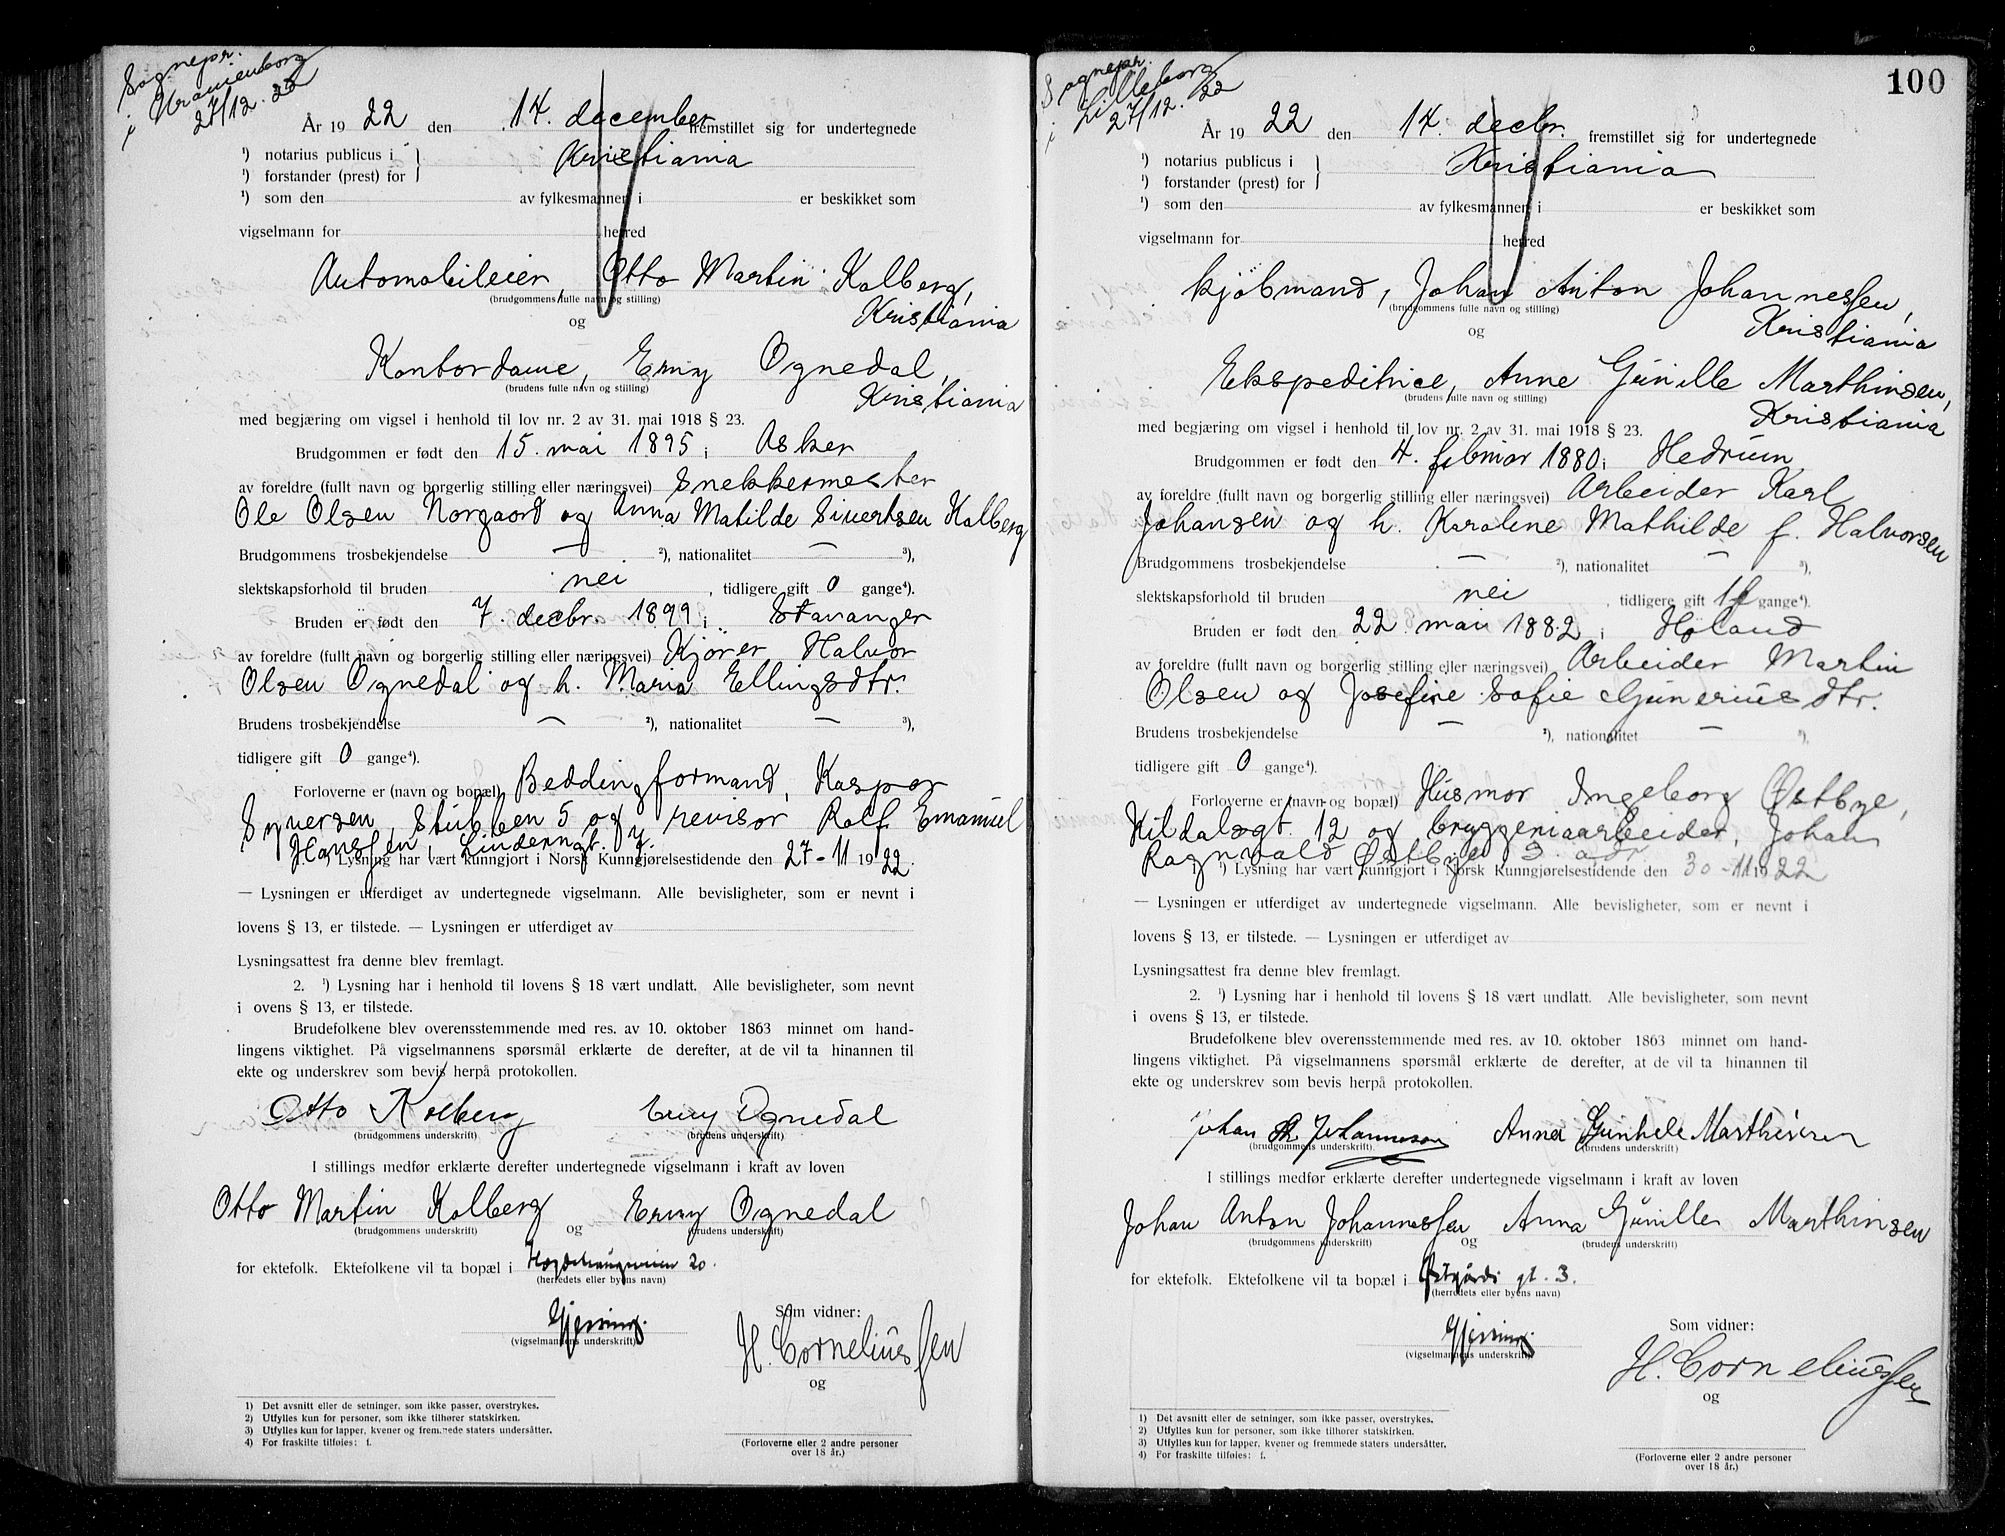 Sognepr.
i Uranienborg
27/12. 22
År 19 22 den 14. december fremstillet sig for undertegnede
¹) notarius publicus i } Kristiania
¹) forstander (prest) for
¹) som den av fylkesmannen i er beskikket som
vigselmann for herred
Automobileier, Otto Martin Kolberg,
(brudgommens fulle navn og stilling)
Kristiania
og
Kontordame, Erny Ognedal,
(brudens fulle navn og stilling)
Kristiania
med begjæring om vigsel i henhold til lov nr. 2 av 31. mai 1918 § 23.
Brudgommen er født den 15. mai 1895 i Asker
av foreldre (fullt navn og borgerlig stilling eller næringsvei) Snekkermester
Ole Olsen Norgaard og Anna Matilde Sivertsen Kolberg
Brudgommens trosbekjendelse — ²), nationalitet — ³),
slektskapsforhold til bruden nei , tidligere gift 0 gange⁴).
Bruden er født den 7. decbr. 1899 i Stavanger
av foreldre (fullt navn og borgerlig stilling eller næringsvei) Kjører Halvor
Olsen Ognedal og h. Maria Ellingsdtr.
Brudens trosbekjendelse — ²), nationalitet — ³),
tidligere gift 0 gange⁴).
Forloverne er (navn og bopæl) Beddingformand, Kasper
Syversen, Stubben 5 og revisor Rolf Emanuel
Hanssen, Linderngt. 7.
Lysning har vært kunngjort i Norsk Kunngjørelsestidende den 27-11 1922.
— Lysningen er utferdiget av undertegnede vigselmann. Alle bevisligheter, som er nevnt i
lovens § 13, er tilstede. — Lysningen er utferdiget av
Lysningsattest fra denne blev fremlagt.
2. ¹) Lysning har i henhold til lovens § 18 vært undlatt. Alle bevisligheter, som nevnt
i ovens § 13, er tilstede.
Brudefolkene blev overensstemmende med res. av 10. oktober 1863 minnet om hand-
lingens viktighet. På vigselmannens spørsmål erklærte de derefter, at de vil ta hinannen til
ekte og underskrev som bevis herpå protokollen.
Otto Kolberg Erny Ognedal
(brudgommens underskrift) (brudens underskrift)
I stillings medfør erklærte derefter undertegnede vigselmann i kraft av loven
Otto Martin Kolberg og Erny Ognedal
(brudgommens underskrift) (brudens underskrift)
for ektefolk. Ektefolkene vil ta bopæl i Hegdehaugsveien 20.
(herredets eller byens navn)
Gjessing.
(vigselmannens underskrift)
Som vidner:
H. Corneliussen
og
1) Det avsnitt eller de setninger, som ikke passer, overstrykes.
2) Utfylles kun for personer, som ikke tilhører statskirken.
3) Utfylles kun for lapper, kvener og fremmede staters undersåtter.
4) For fraskilte tilføies: f.
(Forloverne eller 2 andre personer
over 18 år.)
100
Sognepr.
i Lilleborg
27/12. 22
År 19 22 den 14. decbr. fremstillet sig for undertegnede
¹) notarius publicus i } Kristiania
¹) forstander (prest) for
¹) som den av fylkesmannen i er beskikket som
vigselmann for herred
Kjöbmand, Johan Anton Johannessen,
(brudgommens fulle navn og stilling)
Kristiania
og
Ekspeditrice, Anne Gunille Marthinsen,
(brudens fulle navn og stilling)
Kristiania
med begjæring om vigsel i henhold til lov nr. 2 av 31. mai 1918 § 23.
Brudgommen er født den 4. februar 1880 i Hedrum
av foreldre (fullt navn og borgerlig stilling eller næringsvei) Arbeider Karl
Johansen og h. Karoline Mathilde f. Halvorsen
Brudgommens trosbekjendelse — ²), nationalitet — ³),
slektskapsforhold til bruden nei , tidligere gift 1 f gange⁴).
Bruden er født den 22. mai 1882 i Høland
av foreldre (fullt navn og borgerlig stilling eller næringsvei) Arbeider Martin
Olsen og Josefine Sofie Guneriusdtr.
Brudens trosbekjendelse — ²), nationalitet — ³),
tidligere gift 0 gange⁴).
Forloverne er (navn og bopæl) Husmor Ingeborg Østbye,
Hildalsgt. 12 og bryggeriaarbeider, Johan
Ragnvald Østbye s. adr.
¹) Lysning har vært kunngjort i Norsk Kunngjørelsestidende den 30-11 1922
— Lysningen er utferdiget av undertegnede vigselmann. Alle bevisligheter, som er nevnt i
lovens § 13, er tilstede. — Lysningen er utferdiget av
Lysningsattest fra denne blev fremlagt.
2. ¹) Lysning har i henhold til lovens § 18 vært undlatt. Alle bevisligheter, som nevnt
i ovens § 13, er tilstede.
Brudefolkene blev overensstemmende med res. av 10. oktober 1863 minnet om hand-
lingens viktighet. På vigselmannens spørsmål erklærte de derefter, at de vil ta hinannen til
ekte og underskrev som bevis herpå protokollen.
Johan Johannesen Anna Gunhele Marthinsen
(brudgommens underskrift) (brudens underskrift)
I stillings medfør erklærte derefter undertegnede vigselmann i kraft av loven
Johan Anton Johannessen og Anna Gunille Marthinsen
(brudgommens underskrift) (brudens underskrift)
for ektefolk. Ektefolkene vil ta bopæl i Østgårds gt. 3.
(herredets eller byens navn)
Gjessing
(vigselmannens underskrift)
Som vidner:
H. Corneliussen
og
1) Det avsnitt eller de setninger, som ikke passer, overstrykes.
2) Utfylles kun for personer, som ikke tilhører statskirken.
3) Utfylles kun for lapper, kvener og fremmede staters undersåtter.
4) For fraskilte tilføies: f.
(Forloverne eller 2 andre personer
over 18 år.)